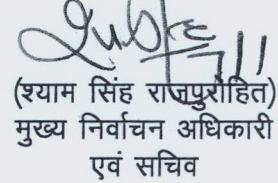 (श्याम सिंह राजपुरोहित)
मुख्य निर्वाचन अधिकारी
एवं सचिव